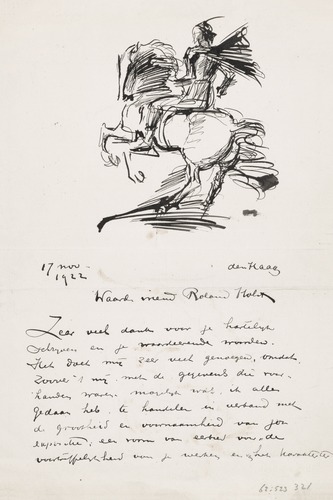 17 nov. den Haag
1922
Waarde vriend Roland Holst
Zeer veel dank voor je hartelijk
schrijven en je waardeerende woorden.
Het doet mij zeer veel genoegen, omdat
zoover 't mij, met de gegevens die voor-
handen waren mogelijk was, ik alles
gedaan heb, te handelen in verband met
de grootheid en voornaamheid van jou
expositie; een vorm van eerbied voor de
voortreffelijkheid van je wezen en het karakter
62:523 321